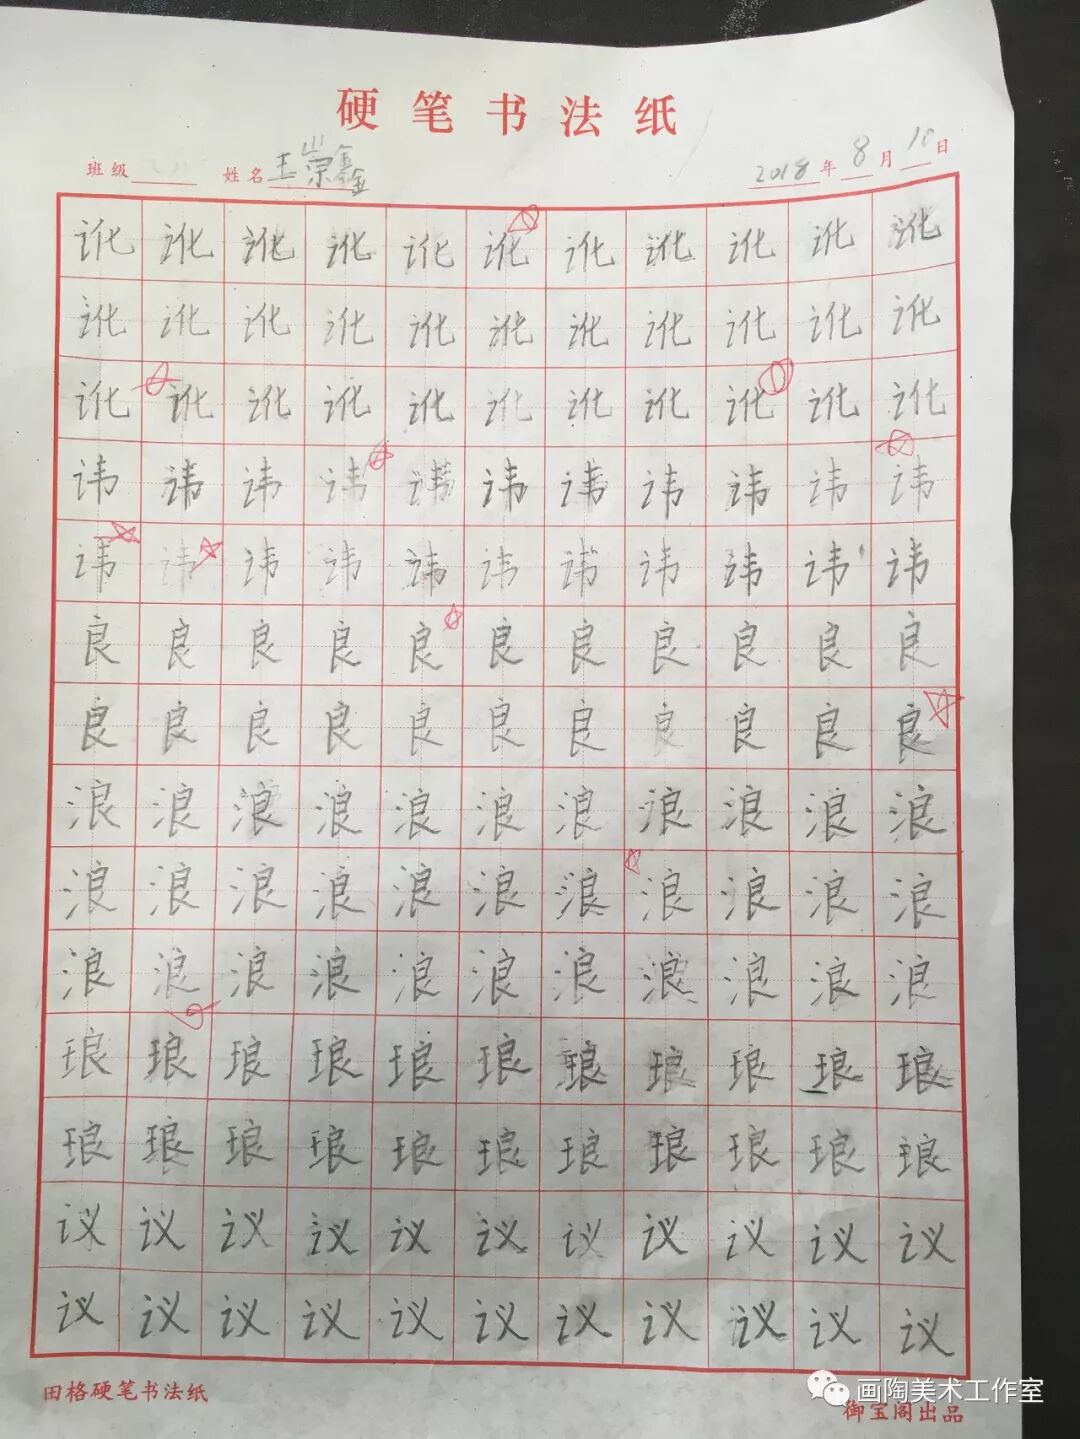 硬笔书法纸
班级 姓名 王崇鑫 2018年8月10日
讹讹讹讹讹讹讹讹讹讹讹
讹讹讹讹讹讹讹讹讹讹讹
讹讹讹讹讹讹讹讹讹讹讹
讳讳讳讳讳讳讳讳讳讳讳
讳讳讳讳讳讳讳讳讳讳讳
良良良良良良良良良良良
良良良良良良良良良良良
浪浪浪浪浪浪浪浪浪浪浪
浪浪浪浪浪浪浪浪浪浪浪
浪浪浪浪浪浪浪浪浪浪浪
琅琅琅琅琅琅琅琅琅琅琅
琅琅琅琅琅琅琅琅琅琅琅
议议议议议议议议议议议
议议议议议议议议议议议
田格硬笔书法纸 御宝阁出品
画陶美术工作室